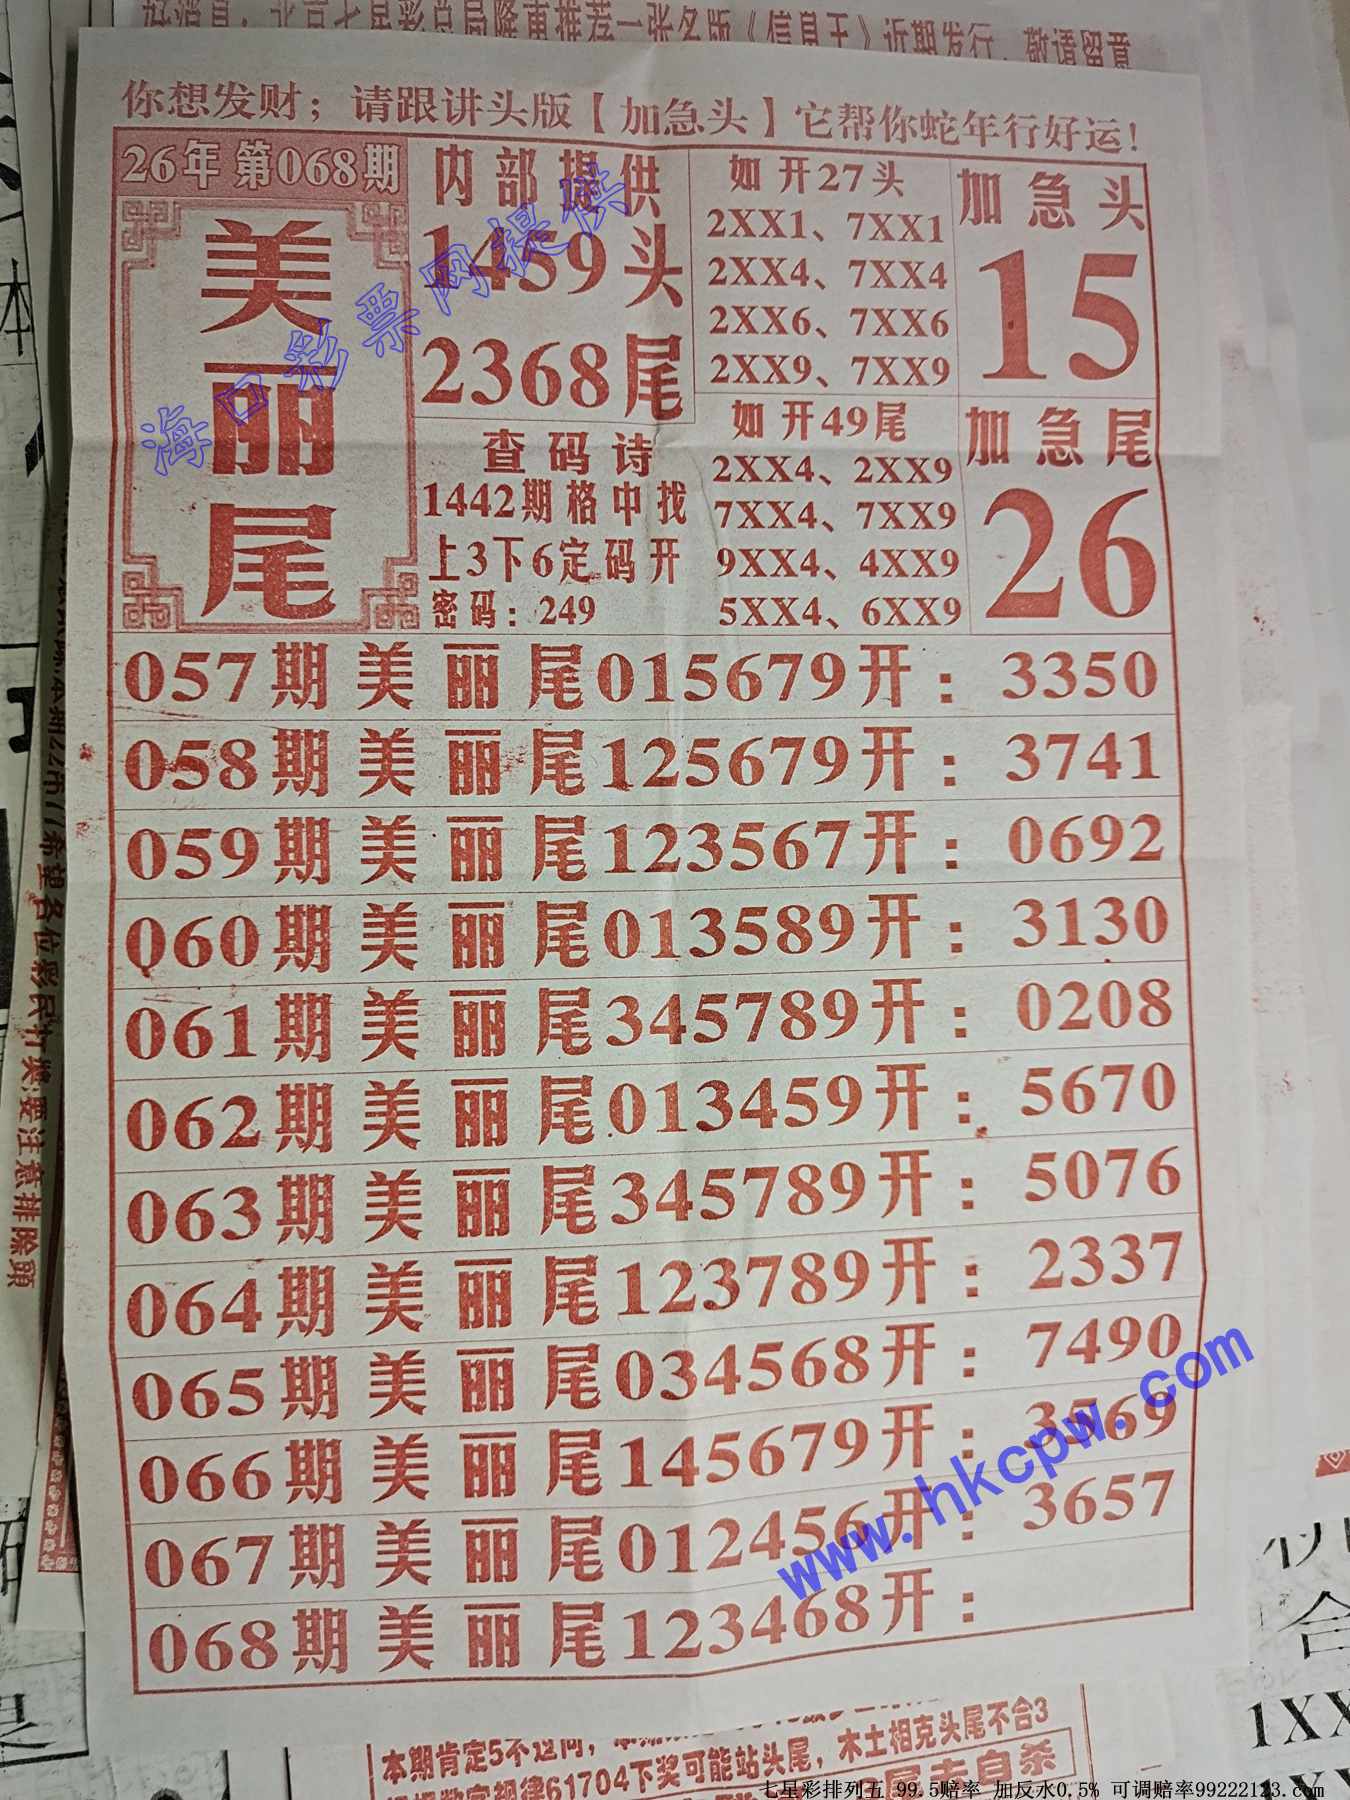 好消息，北京七星彩总局隆重推荐一张名版《信息王》近期发行，敬请留意
你想发财；请跟讲头版【加急头】它帮你蛇年行好运！
26年 第068期
美
丽
尾
内部提供
1459头
2368尾
查码诗
1442期格中找
上3下6定码开
密码：249
如开27头
2XX1、7XX1
2XX4、7XX4
2XX6、7XX6
2XX9、7XX9
如开49尾
2XX4、2XX9
7XX4、7XX9
9XX4、4XX9
5XX4、6XX9
加急头
15
加急尾
26
057期美丽尾015679开：3350
058期美丽尾125679开：3741
059期美丽尾123567开：0692
060期美丽尾013589开：3130
061期美丽尾345789开：0208
062期美丽尾013459开：5670
063期美丽尾345789开：5076
064期美丽尾123789开：2337
065期美丽尾034568开：7490
066期美丽尾145679开：3569
067期美丽尾012456开：3657
068期美丽尾123468开：
海口彩票网提供
www.hkcpw.com
希望各位彩民打奖要注意排除头
本期肯定5不过问，
木土相克头尾不合3
61704下奖可能站头尾，
尾去自杀
合
1XX
七星彩排列五 99.5赔率 加反水0.5% 可调赔率99222123.com